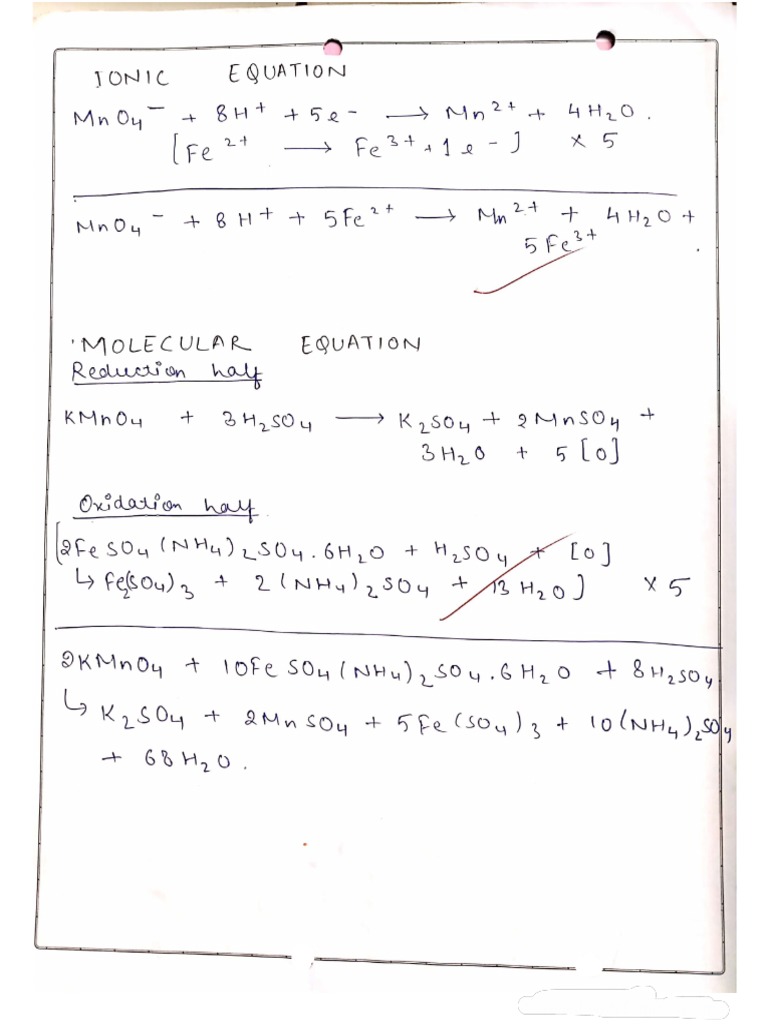 IONIC EQUATION
MnO₄⁻ + 8H⁺ + 5e⁻ → Mn²⁺ + 4H₂O.
[Fe²⁺ → Fe³⁺ + 1e⁻] × 5
MnO₄⁻ + 8H⁺ + 5Fe²⁺ → Mn²⁺ + 4H₂O +
5Fe³⁺.
MOLECULAR EQUATION
Reduction half
KMnO₄ + 3H₂SO₄ → K₂SO₄ + 2MnSO₄ +
3H₂O + 5[O]
Oxidation half
[2FeSO₄(NH₄)₂SO₄.6H₂O + H₂SO₄ + [O]
↳ Fe₂(SO₄)₃ + 2(NH₄)₂SO₄ + 13H₂O] × 5
2KMnO₄ + 10FeSO₄(NH₄)₂SO₄.6H₂O + 8H₂SO₄
↳ K₂SO₄ + 2MnSO₄ + 5Fe(SO₄)₃ + 10(NH₄)₂SO₄
+ 68H₂O.